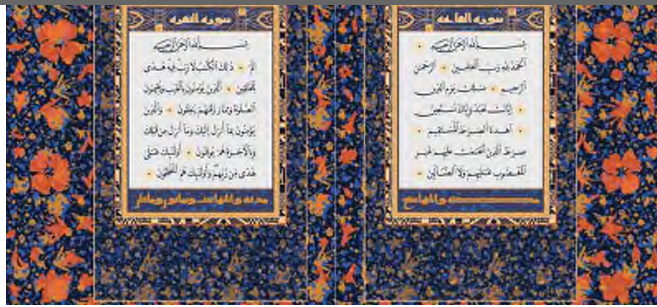 سورة الفاتحة
بسم الله الرحمن الرحيم
الحمد لله رب العلمين الرحمن
الرحيم ملك يوم الدين
إياك نعبد وإياك نستعين
اهدنا الصرط المستقيم
صرط الذين أنعمت عليهم غير
المغضوب عليهم ولا الضالين
سورة البقرة
بسم الله الرحمن الرحيم
الم ذلك الكتب لا ريب فيه هدى
للمتقين الذين يؤمنون بالغيب ويقيمون
الصلوة ومما رزقنهم ينفقون والذين
يؤمنون بما أنزل إليك وما أنزل من قبلك
وبالأخرة هم يوقنون أولئك على
هدى من ربهم وأولئك هم المفلحون